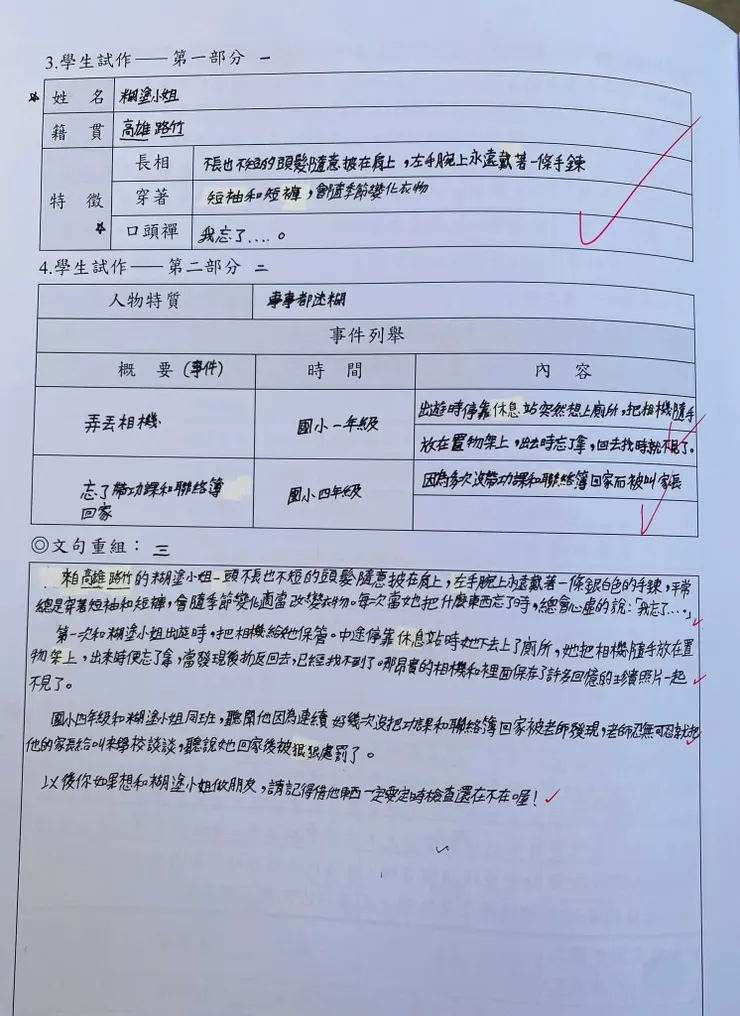 3.學生試作——第一部分 一
☆ 姓名 糊塗小姐
籍貫 高雄路竹
特徵 長相 不長也不短的頭髮隨意披在肩上，左手腕上永遠戴著一條手鍊
穿著 短袖和短褲，會隨季節變化衣物
☆ 口頭禪 我忘了....。
4.學生試作——第二部分 二
人物特質 事事都迷糊
事件列舉
概要(事件) 時間 內容
弄丟相機 國小一年級 出遊時停靠休息站突然想上廁所，把相機隨手
放在置物架上，出去時忘了拿，回去找時就不見了。
忘了帶功課和聯絡簿 國小四年級 因為多次沒帶功課和聯絡簿回家而被叫家長
回家
◎文句重組： 三
來自高雄路竹的糊塗小姐一頭不長也不短的頭髮隨意披在肩上，左手腕上永遠戴著一條銀白色的手鍊，平常
總是穿著短袖和短褲，會隨季節變化適當改變衣物。每次當她把什麼東西忘了時，總會心虛的說：「我忘了...。」
第一次和糊塗小姐出遊時，把相機給她保管。中途停靠休息站時她下去上了廁所，她把相機隨手放在置
物架上，出來時便忘了拿，當發現後折返回去，已經找不到了。那昂貴的相機和裡面保存了許多回憶的珍貴照片一起
不見了。
國小四年級和糊塗小姐同班，聽聞他因為連續好幾次沒把功課和聯絡簿回家被老師發現，老師忍無可忍就把
他的家長給叫來學校談談，聽說她回家後被狠狠處罰了。
以後你如果想和糊塗小姐做朋友，請記得借他東西一定要定時檢查還在不在喔！